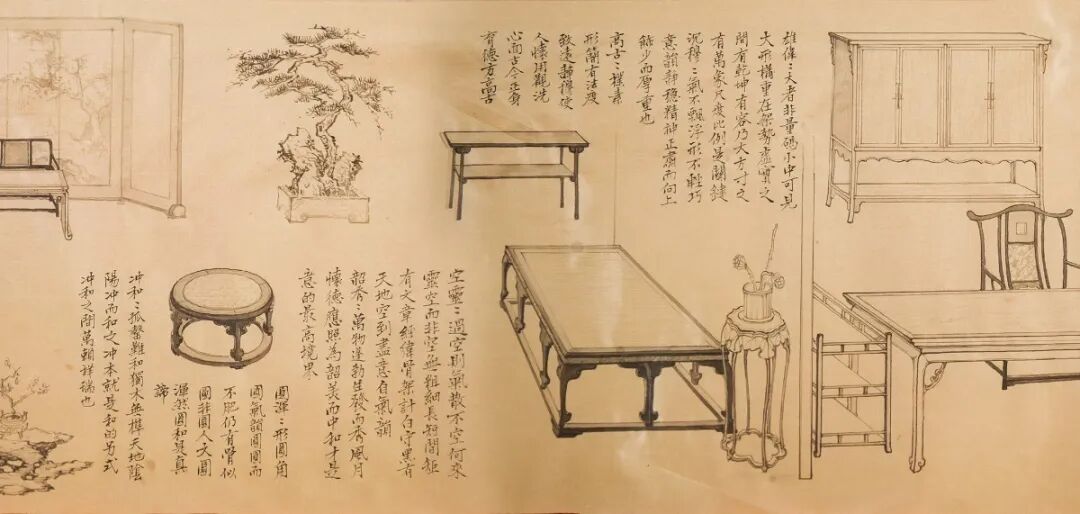 雄偉：大者非量碼小中可見
大形構重在架勢虛實之
間有乾坤有容乃大方寸之
有萬象尺度比例是關鍵
沉穆：氣不飄浮形不輕巧
意韻靜穩精神正肅而向上
餘少而厚重也
高古：樸素
形簡有法度
致遠靜得使
人懷用觀洗
心面古今正身
育德方高古
空靈：過空則氣散不空何來
靈空而非空無粗細長短間矩
有文章經偉骨架計白守黑有
天地空到盡意自氣韻
韶秀：萬物逢勃生發而秀風月
懷德應照為韶美而中和才是
意的最高境界
圓渾：形圓角
圓氣韻圓圓而
不肥仍有骨似
圓非圓人文圓
渾然圓和是真
諦
冲和：孤馨難和獨木無樸天地陰
陽冲而和之冲本就是和的另式
冲和之間萬賴祥瑞也